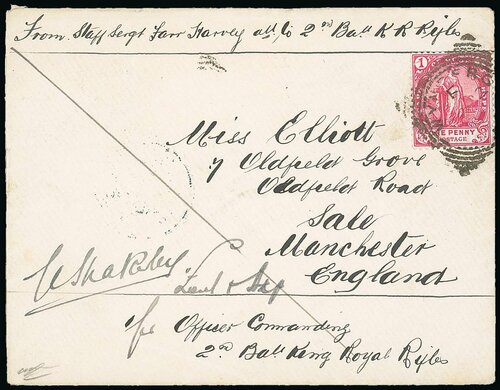 From Staff Sergt Farr Harvey att to 2nd Batt K R Rifles
1
E PENNY
POSTAGE
Miss Elliott
7 Oldfield Grove
Oldfield Road
Sale
Manchester
England
Lieut &
for Officer Commanding
2nd Batt King Royal Rifles